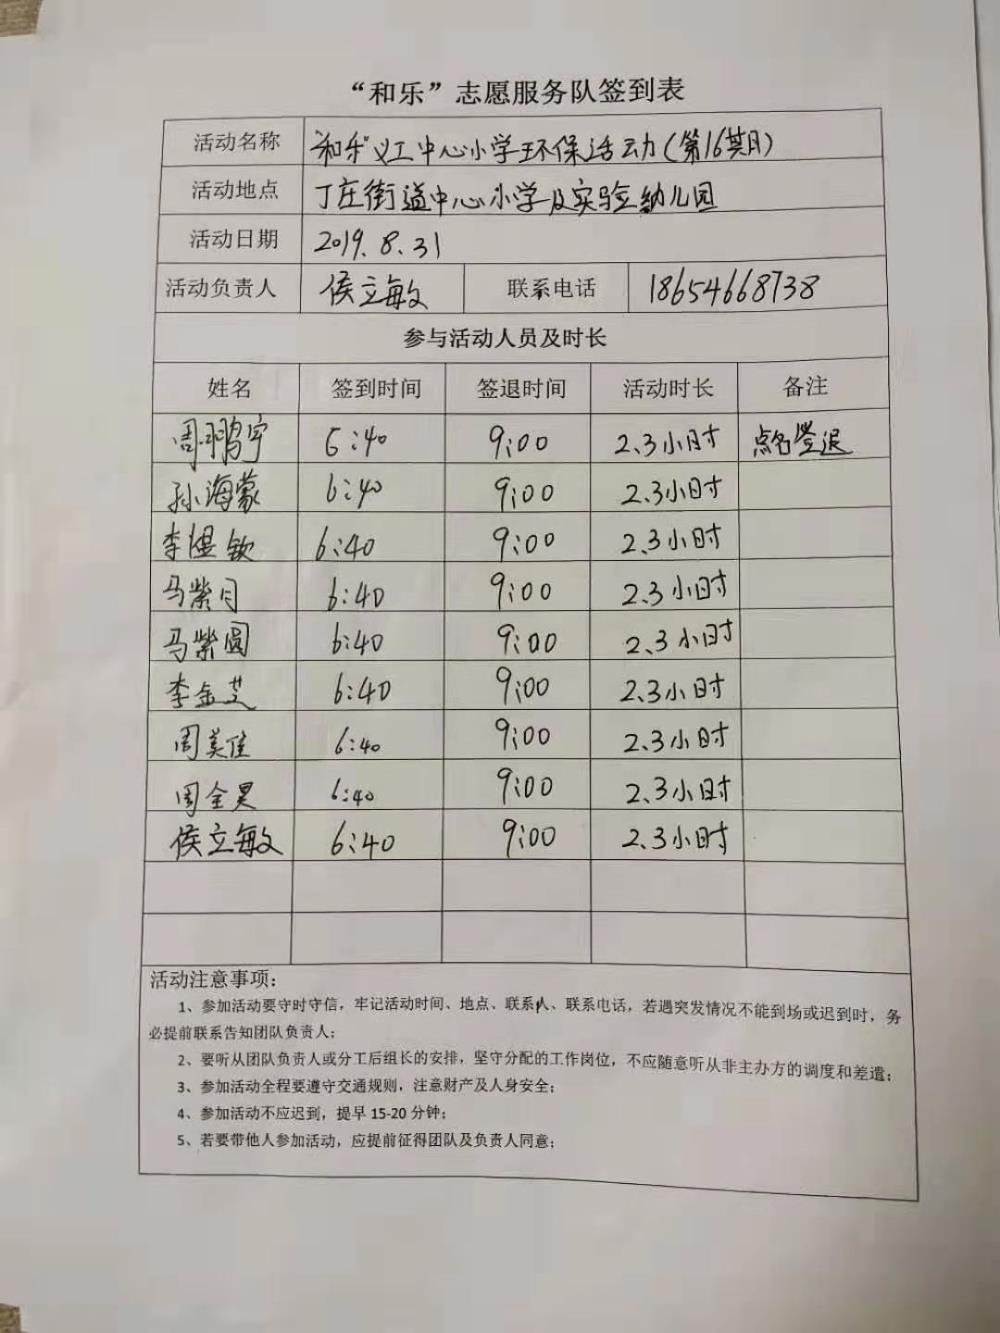 “和乐”志愿服务队签到表
活动名称 “和乐”义工中心小学环保活动(第16期)
活动地点 丁庄街道中心小学及实验幼儿园
活动日期 2019.8.31
活动负责人 侯立敏 联系电话 18654668738
参与活动人员及时长
姓名 签到时间 签退时间 活动时长 备注
周鹏宇 6:40 9:00 2.3小时 点名签退
孙海蒙 6:40 9:00 2.3小时
李煜钦 6:40 9:00 2.3小时
马紫月 6:40 9:00 2.3小时
马紫圆 6:40 9:00 2.3小时
李金芝 6:40 9:00 2.3小时
周美佳 6:40 9:00 2.3小时
周全昊 6:40 9:00 2.3小时
侯立敏 6:40 9:00 2.3小时
活动注意事项:
1、参加活动要守时守信，牢记活动时间、地点、联系人、联系电话，若遇突发情况不能到场或迟到时，务
必提前联系告知团队负责人；
2、要听从团队负责人或分工后组长的安排，坚守分配的工作岗位，不应随意听从非主办方的调度和差遣；
3、参加活动全程要遵守交通规则，注意财产及人身安全；
4、参加活动不应迟到，提早 15-20 分钟；
5、若要带他人参加活动，应提前征得团队及负责人同意；